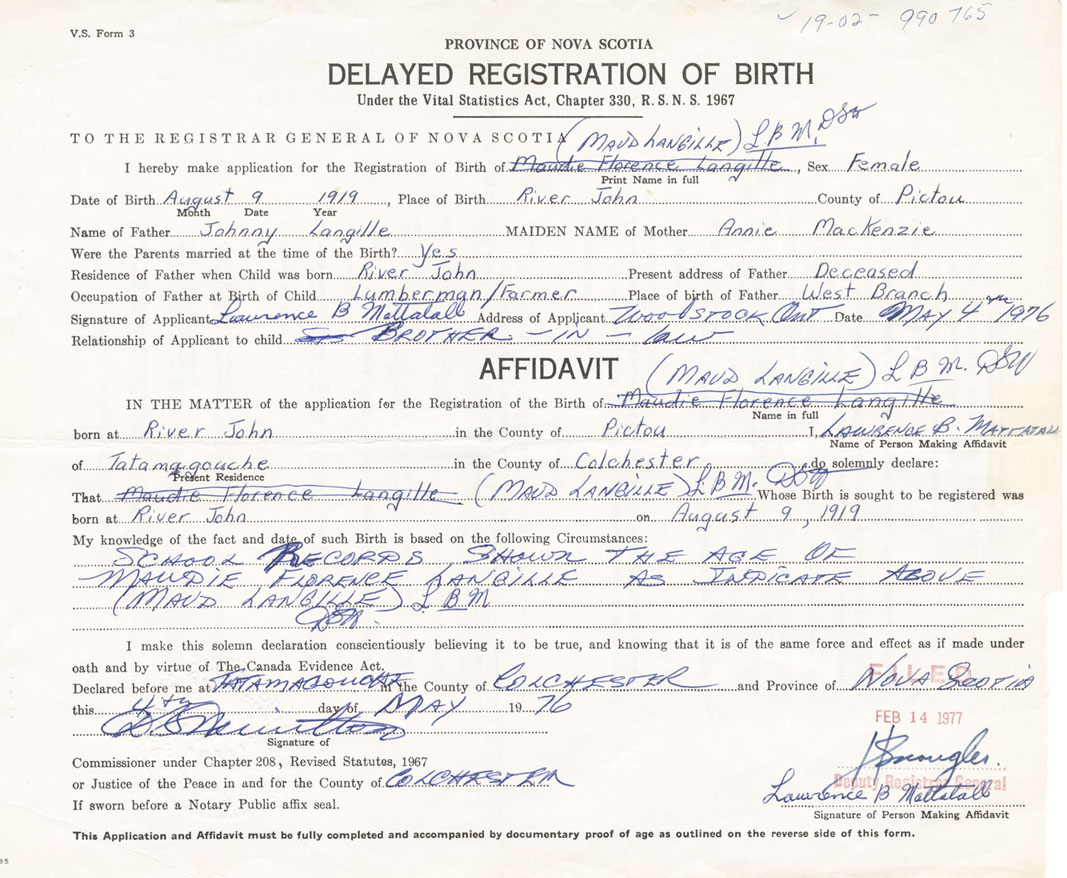 19-02- 990765
V.S. Form 3
PROVINCE OF NOVA SCOTIA
DELAYED REGISTRATION OF BIRTH
Under the Vital Statistics Act, Chapter 330, R.S.N.S. 1967
TO THE REGISTRAR GENERAL OF NOVA SCOTIA (MAUD LANGILLE) L B M. DSW
I hereby make application for the Registration of Birth of Maudie Florence Langille, Sex Female
Print Name in full
Date of Birth August 9 1919, Place of Birth River John County of Pictou
Month Date Year
Name of Father Johnny Langille MAIDEN NAME of Mother Annie MacKenzie
Were the Parents married at the time of the Birth? Yes
Residence of Father when Child was born River John Present address of Father Deceased
Occupation of Father at Birth of Child Lumberman/Farmer Place of birth of Father West Branch
Signature of Applicant Lawrence B Mattatall Address of Applicant WOODSTOCK Ont Date MAY 4 1976
Relationship of Applicant to child BROTHER - IN - law
AFFIDAVIT (MAUD LANGILLE) L B M. DSW
IN THE MATTER of the application for the Registration of the Birth of Maudie Florence Langille
Name in full
born at River John in the County of Pictou I, LAWRENCE B. MATTATALL
Name of Person Making Affidavit
of Tatamagouche in the County of Colchester do solemnly declare:
Present Residence
That Maudie Florence Langille (MAUD LANGILLE) L B M. DSW Whose Birth is sought to be registered was
born at River John on August 9, 1919
My knowledge of the fact and date of such Birth is based on the following Circumstances:
SCHOOL RECORDS SHOWN THE AGE OF
MAUDIE FLORENCE LANGILLE AS INDICATE ABOVE
(MAUD LANGILLE) L B M
DSW.
I make this solemn declaration conscientiously believing it to be true, and knowing that it is of the same force and effect as if made under
oath and by virtue of The Canada Evidence Act.
FILED
Declared before me at TATAMAGOUCHE in the County of COLCHESTER and Province of NOVA SCOTIA
this 4th day of MAY 1976
FEB 14 1977
Signature of
Commissioner under Chapter 208, Revised Statutes, 1967
or Justice of the Peace in and for the County of COLCHESTER
Deputy Registrar General
Lawrence B Mattatall
If sworn before a Notary Public affix seal.
Signature of Person Making Affidavit
This Application and Affidavit must be fully completed and accompanied by documentary proof of age as outlined on the reverse side of this form.